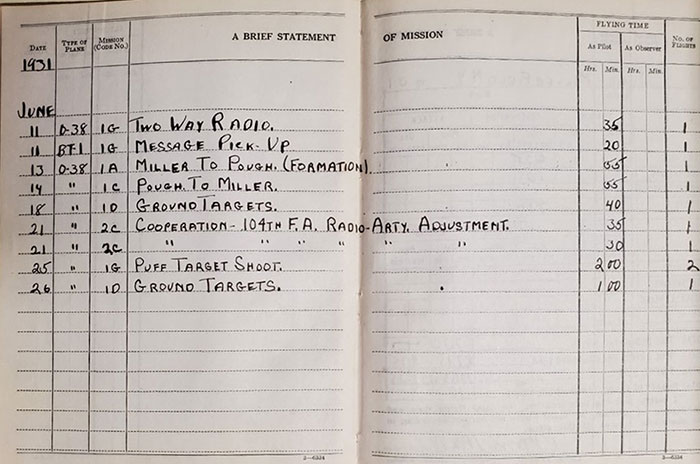 FLYING TIME
DATE TYPE OF PLANE MISSION (CODE NO.) A BRIEF STATEMENT OF MISSION As Pilot As Observer NO. OF FLIGHTS
Hrs. Min. Hrs. Min.
1931
JUNE
11 O-38 1G TWO WAY RADIO. 35 1
11 BT-1 1G MESSAGE PICK-UP 20 1
13 O-38 1A MILLER TO POUGH. (FORMATION). 55 1
14 " 1C POUGH. TO MILLER. 55 1
18 " 1D GROUND TARGETS. 40 1
21 " 2C COOPERATION- 104TH F.A. RADIO-ARTY. ADJUSTMENT. 35 1
21 " 2C " " " " " " 30 1
25 " 1G PUFF TARGET SHOOT. 2 00 2
26 " 1D GROUND TARGETS. 1 00 1
3—6334 3—6334